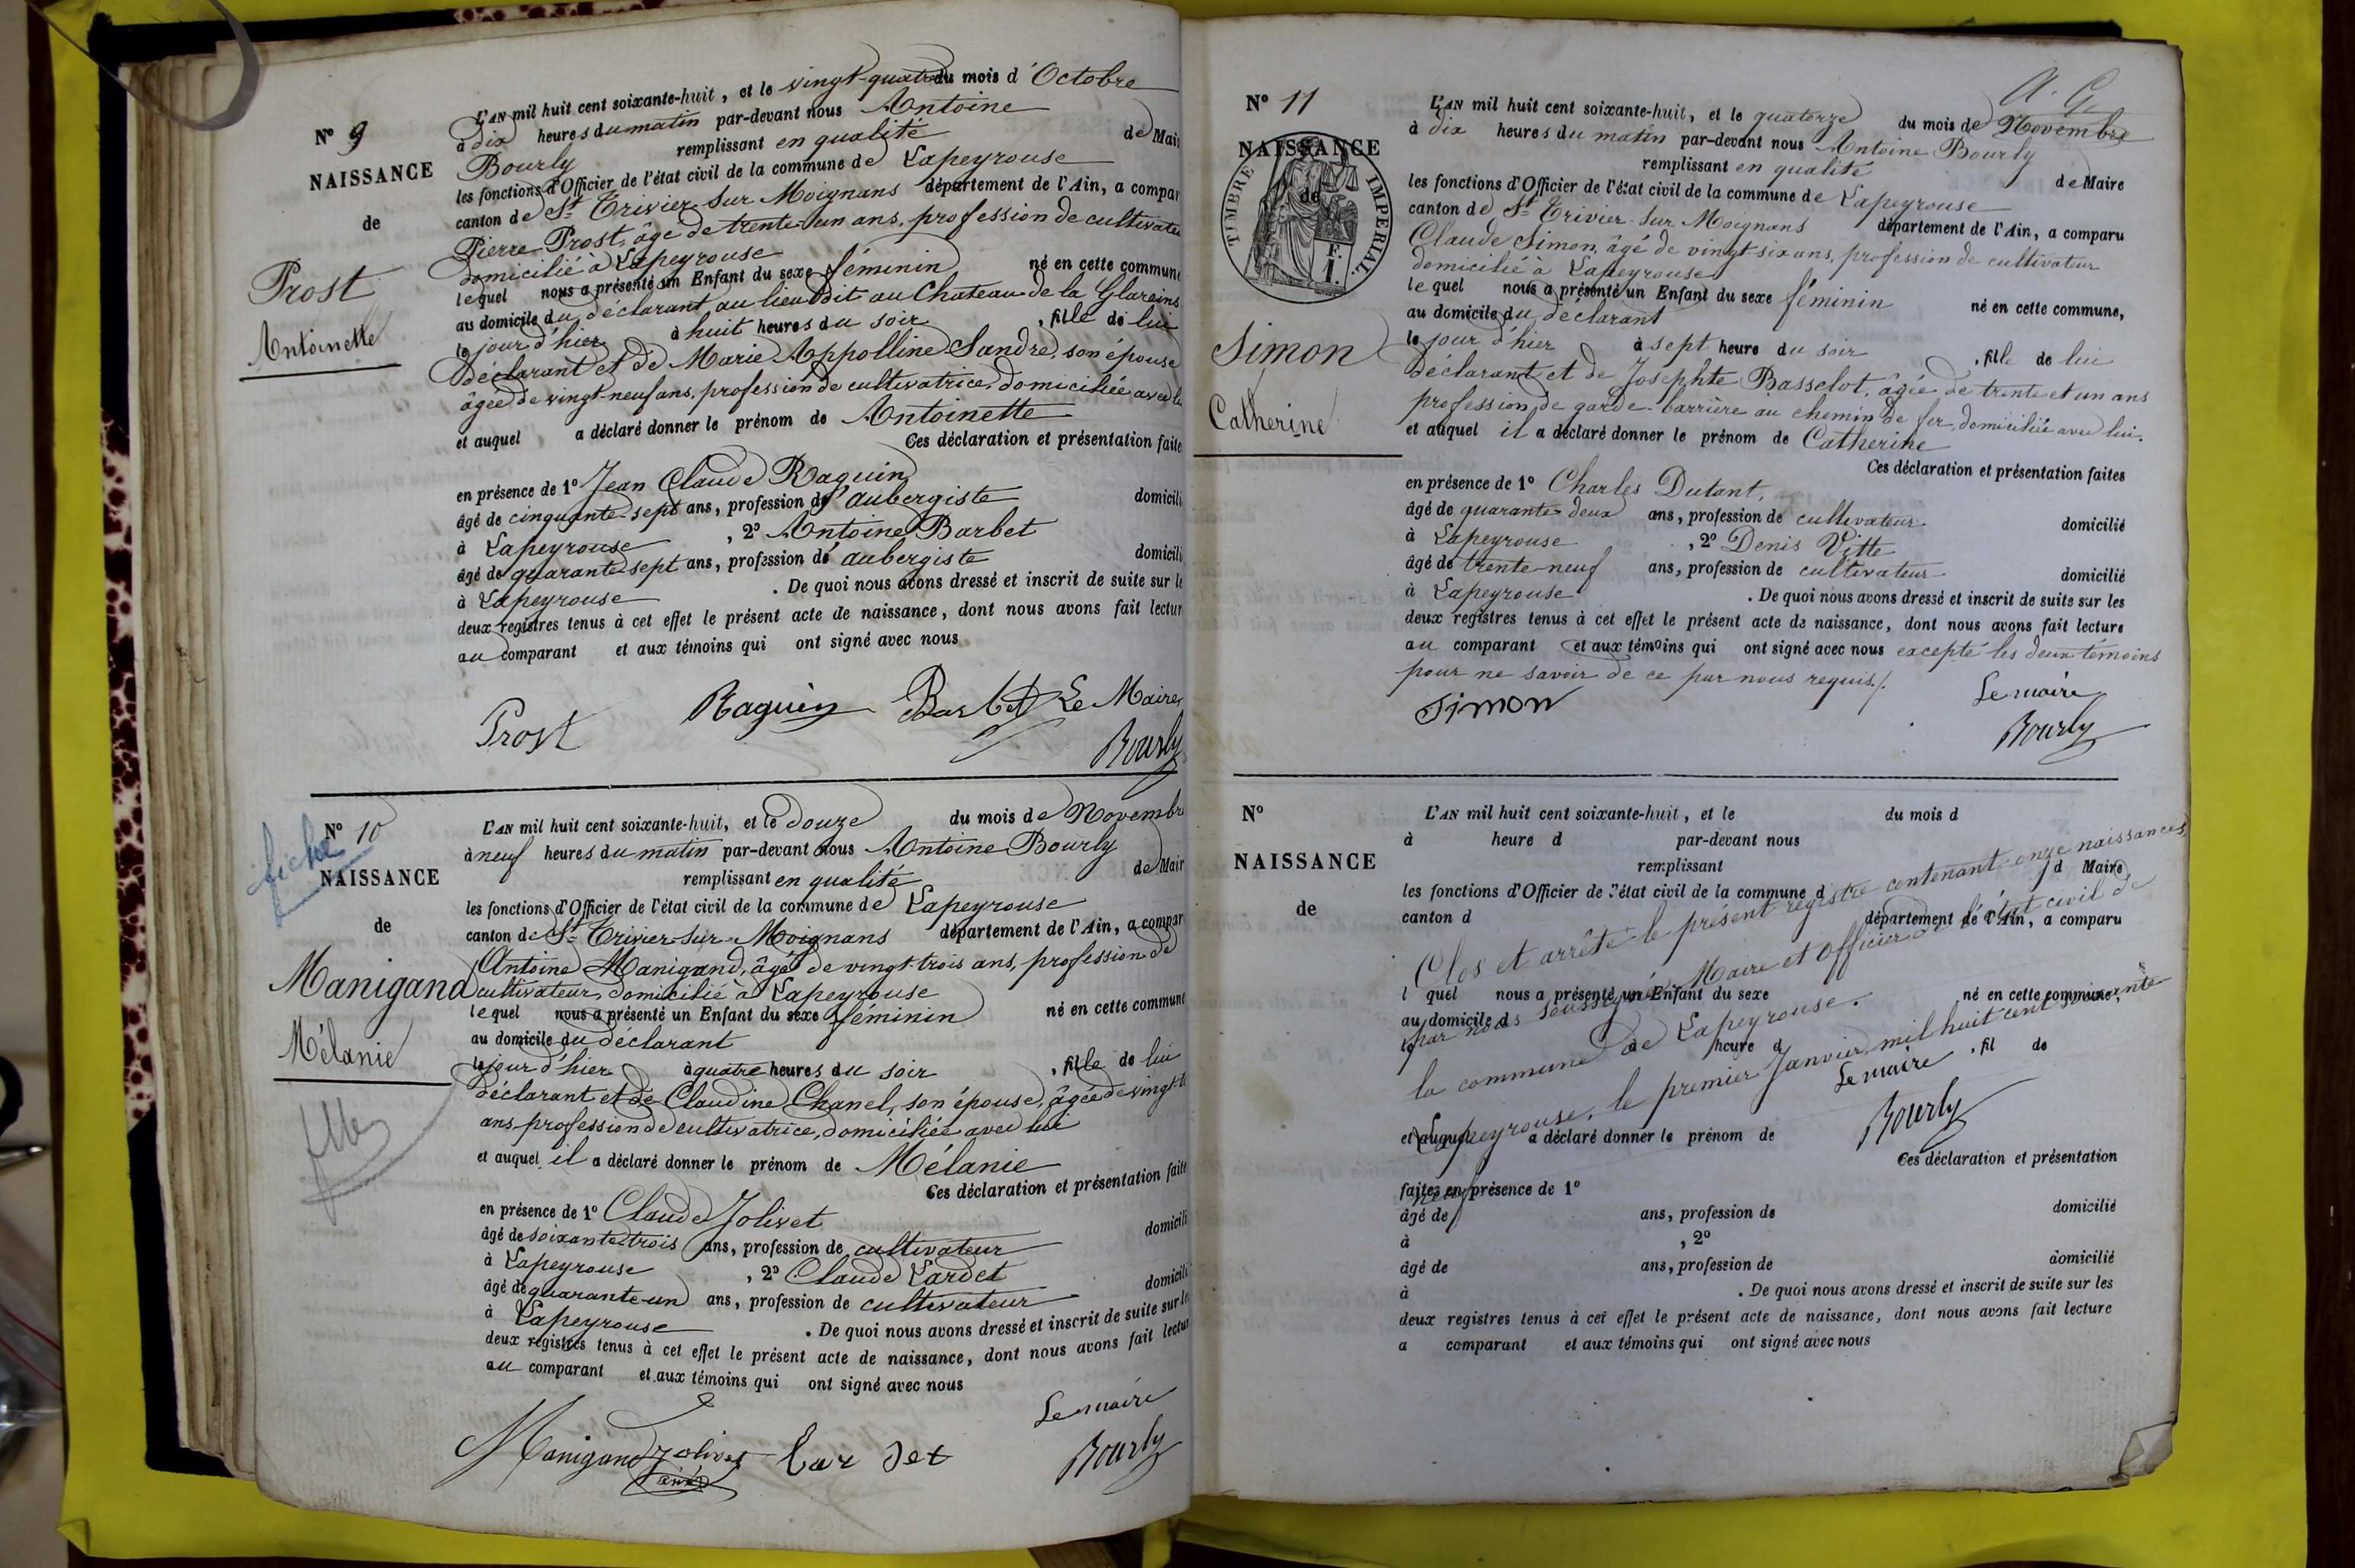 N° 9
NAISSANCE
de
Prost
Antoinette
L'AN mil huit cent soixante-huit, et le vingt-quatre du mois d'Octobre
à dix heures du matin par-devant nous Antoine
Bourly remplissant en qualité de Mair
les fonctions d'Officier de l'état civil de la commune de Lapeyrouse
canton de St Trivier-sur-Moignans département de l'Ain, a compar
Pierre Prost, âgé de trente-un ans, profession de cultivateu
domicilié à Lapeyrouse
lequel nous a présenté un Enfant du sexe féminin né en cette commune
au domicile du déclarant au lieu dit au Chateau de la Glareins
le jour d'hier à huit heures du soir, fille de lui
déclarant et de Marie Appolline Sandre, son épouse
âgée de vingt-neuf ans, profession de cultivatrice, domiciliée avec lu
et auquel a déclaré donner le prénom de Antoinette
Ces déclaration et présentation faite
en présence de 1° Jean Claude Raguin
âgé de cinquante-sept ans, profession d'aubergiste domicili
à Lapeyrouse, 2° Antoine Barbet
âgé de quarante-sept ans, profession d'aubergiste domicili
à Lapeyrouse. De quoi nous avons dressé et inscrit de suite sur le
deux registres tenus à cet effet le présent acte de naissance, dont nous avons fait lectur
au comparant et aux témoins qui ont signé avec nous
Prost Raguin Barbet Le Maire
Bourly
fiche
N° 10
NAISSANCE
de
Manigand
Mélanie
L'AN mil huit cent soixante-huit, et le douze du mois de Novembr
à neuf heures du matin par-devant nous Antoine Bourly
remplissant en qualité de Mair
les fonctions d'Officier de l'état civil de la commune de Lapeyrouse
canton de St Trivier-sur-Moignans département de l'Ain, a compar
Antoine Manigand, âgé de vingt-trois ans, profession de
cultivateur, domicilié à Lapeyrouse
lequel nous a présenté un Enfant du sexe féminin né en cette commune
au domicile du déclarant
le jour d'hier à quatre heures du soir, fille de lui
déclarant et de Claudine Chanel, son épouse, âgée de vingt-t
ans, profession de cultivatrice, domiciliée avec lui
et auquel il a déclaré donner le prénom de Mélanie
Ces déclaration et présentation faite
en présence de 1° Claude Jolivet
âgé de soixante-trois ans, profession de cultivateur domicili
à Lapeyrouse, 2° Claude Lardet
âgé de quarante-un ans, profession de cultivateur domicili
à Lapeyrouse. De quoi nous avons dressé et inscrit de suite sur le
deux registres tenus à cet effet le présent acte de naissance, dont nous avons fait lectur
au comparant et aux témoins qui ont signé avec nous
Manigand Jolivet Lardet Le maire
Bourly
N° 11
NAISSANCE
de
TIMBRE IMPERIAL.
F.
1.
Simon
Catherine
L'AN mil huit cent soixante-huit, et le quatorze du mois de Novembre
à dix heures du matin par-devant nous Antoine Bourly
remplissant en qualité de Maire
les fonctions d'Officier de l'état civil de la commune de Lapeyrouse
canton de St Trivier-sur-Moignans département de l'Ain, a comparu
Claude Simon, âgé de vingt-six ans, profession de cultivateur
domicilié à Lapeyrouse
lequel nous a présenté un Enfant du sexe féminin né en cette commune,
au domicile du déclarant
le jour d'hier à sept heure du soir, fille de lui
déclarant et de Josephte Basselot, âgée de trente et un ans
profession de garde-barrière au chemin de fer, domiciliée avec lui.
et auquel il a déclaré donner le prénom de Catherine
Ces déclaration et présentation faites
en présence de 1° Charles Dutant,
âgé de quarante-deux ans, profession de cultivateur domicilié
à Lapeyrouse, 2° Denis Vitte
âgé de trente-neuf ans, profession de cultivateur domicilié
à Lapeyrouse. De quoi nous avons dressé et inscrit de suite sur les
deux registres tenus à cet effet le présent acte de naissance, dont nous avons fait lecture
au comparant et aux témoins qui ont signé avec nous excepté les deux témoins
pour ne savoir de ce par nous requis./.
Simon Le maire
Bourly
N°
NAISSANCE
de
L'AN mil huit cent soixante-huit, et le du mois d
à heure d par-devant nous
remplissant d Maire
les fonctions d'Officier de l'état civil de la commune d
canton d département de l'Ain, a comparu
l quel nous a présenté un Enfant du sexe né en cette commune,
au domicile d
le à heure d, fil de
et auquel a déclaré donner le prénom de
Ces déclaration et présentation
faites en présence de 1°
âgé de ans, profession de domicilié
à, 2°
âgé de ans, profession de domicilié
à. De quoi nous avons dressé et inscrit de suite sur les
deux registres tenus à cet effet le présent acte de naissance, dont nous avons fait lecture
a comparant et aux témoins qui ont signé avec nous
Clos et arrêté le présent registre contenant onze naissances,
par nous soussigné Maire et officier de l'état civil de
la commune de Lapeyrouse.
à Lapeyrouse, le premier Janvier, mil huit cent soixante
neuf
Le maire
Bourly